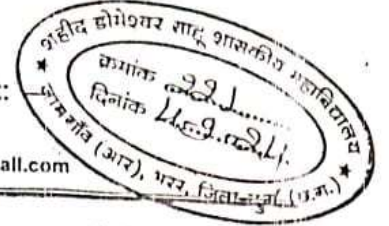 शहीद डोमेश्वर साहू शासकीय महाविद्यालय
क्रमांक 221
दिनांक
जामगाँव (आर), भरर, जिला-दुर्ग (छ.ग.)
::
all.com